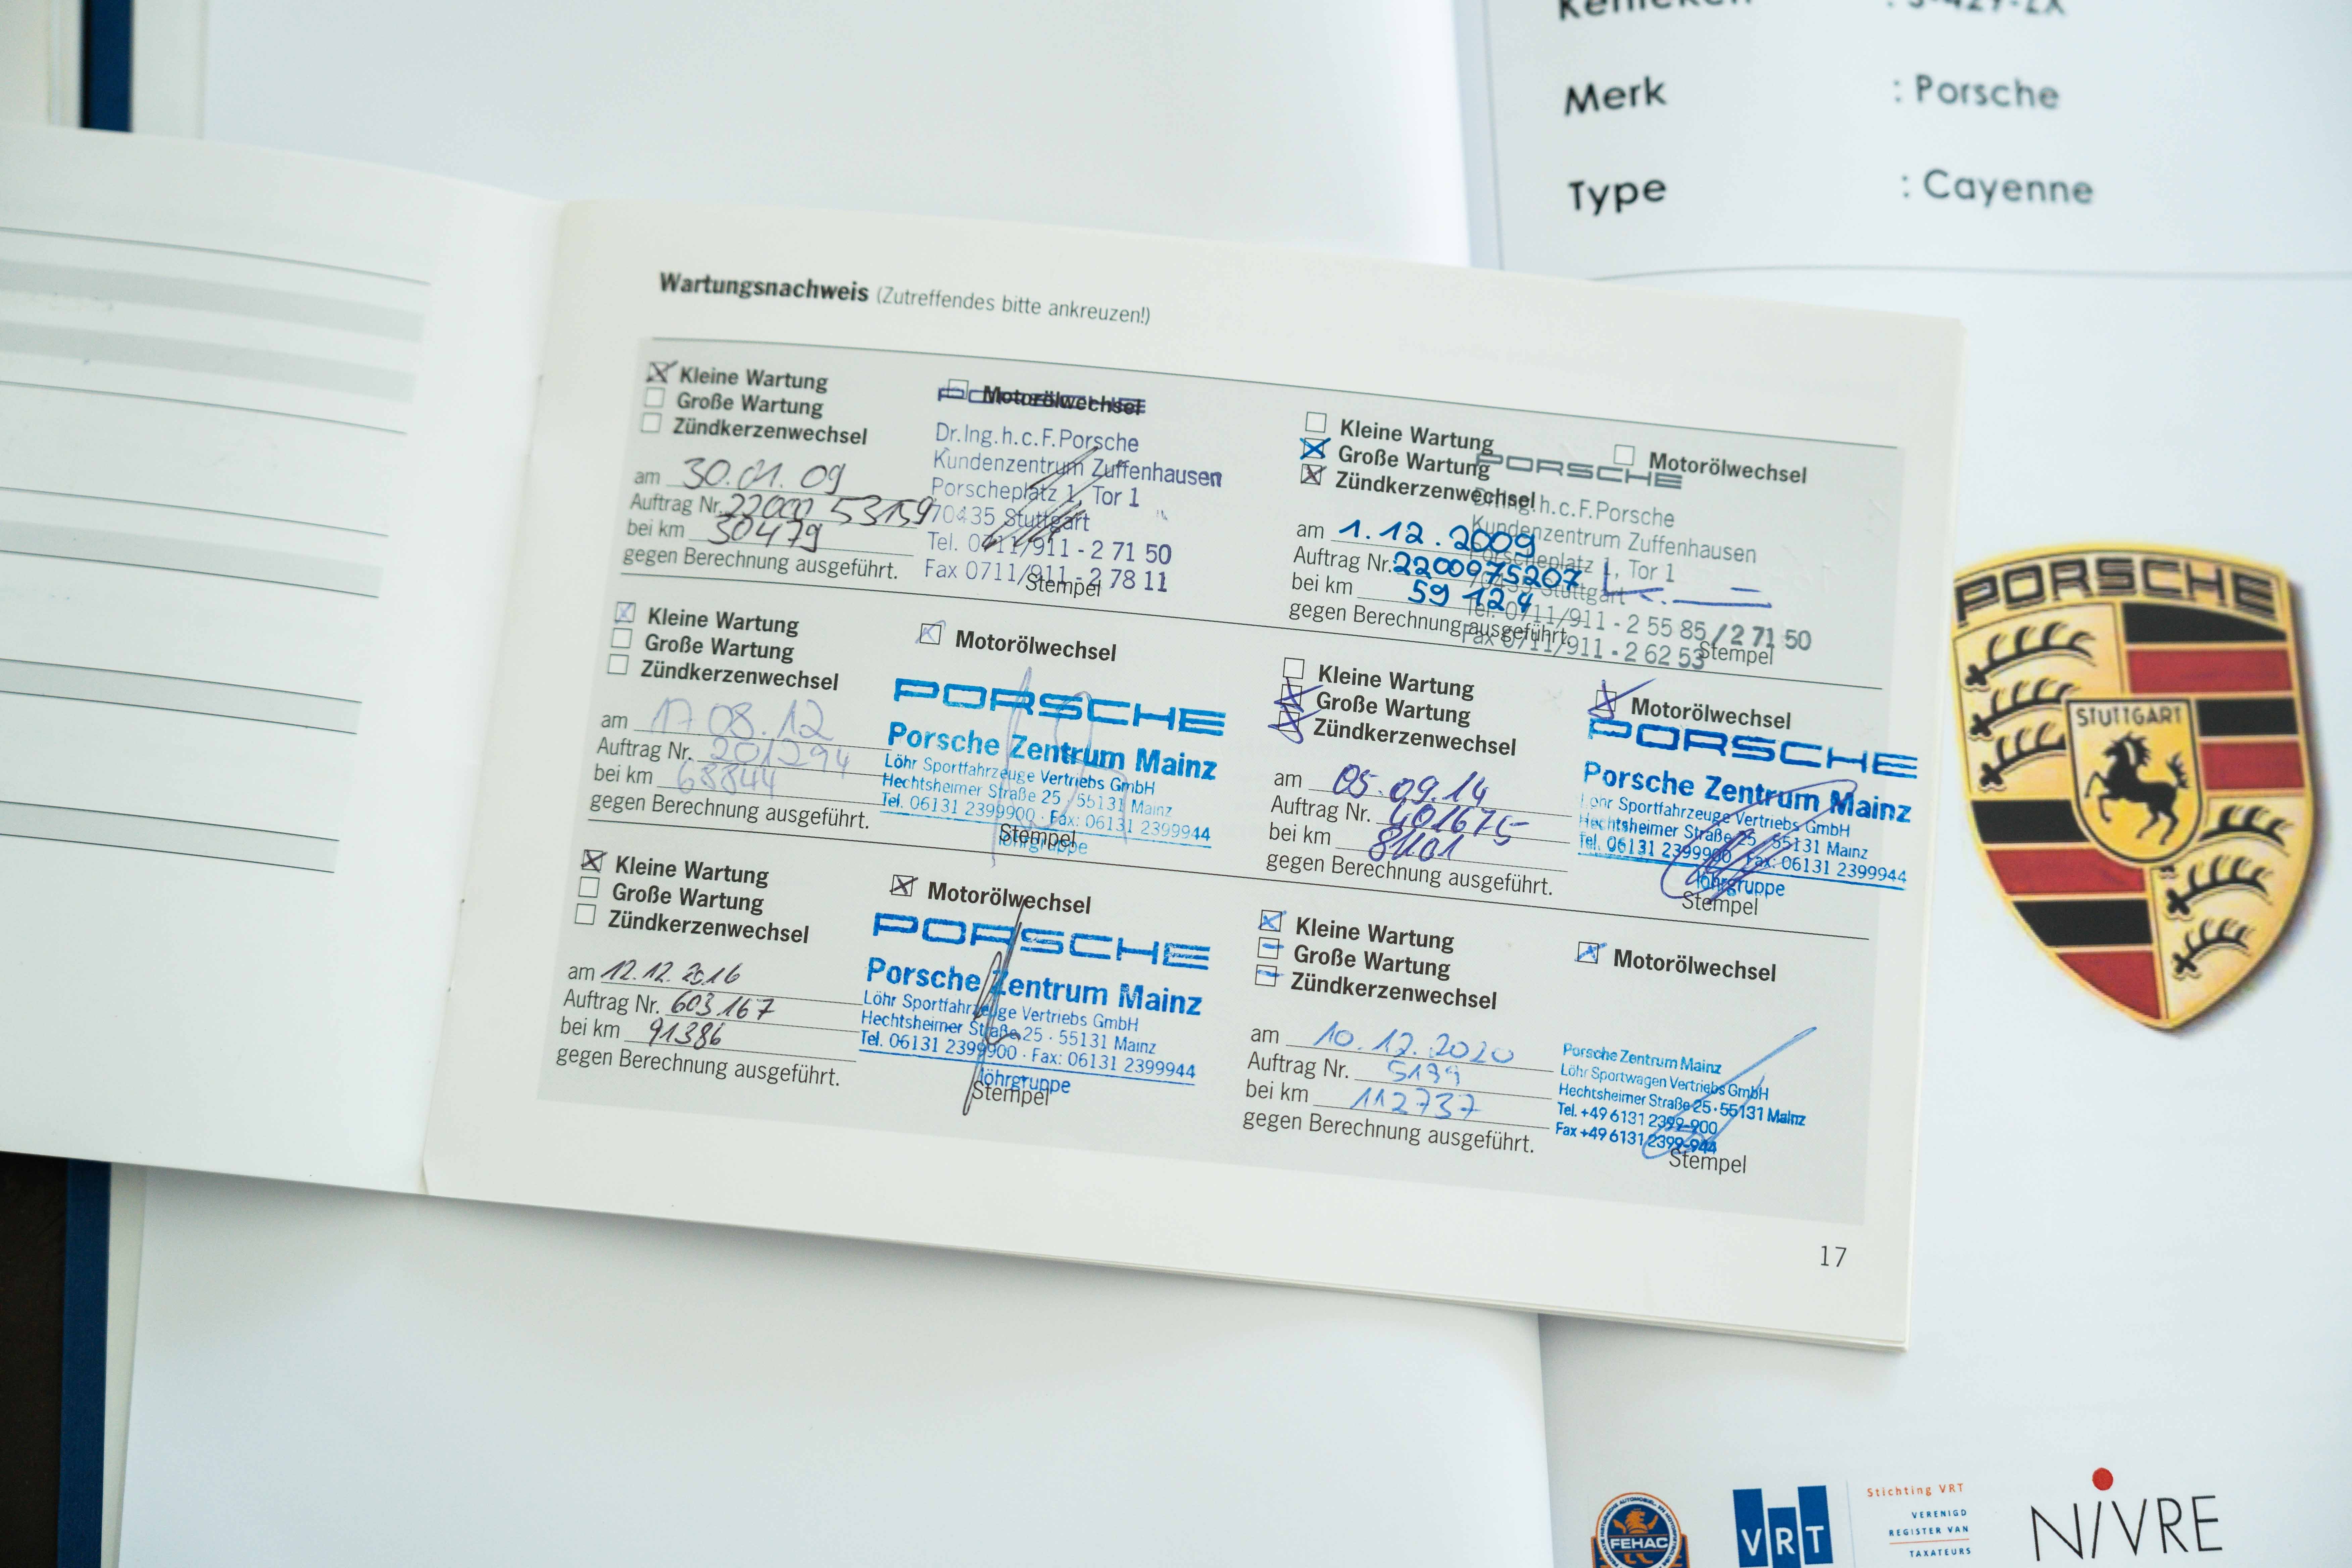 Merk : Porsche
Type : Cayenne
Wartungsnachweis (Zutreffendes bitte ankreuzen!)
Kleine Wartung
Große Wartung
Zündkerzenwechsel
Motorölwechsel
PORSCHE
Dr.Ing.h.c.F.Porsche
Kundenzentrum Zuffenhausen
Porscheplatz 1, Tor 1
70435 Stuttgart
Tel. 0711/911 - 2 71 50
Fax 0711/911 - 2 78 11
am 30.01.09
Auftrag Nr. 53159
bei km 30479
gegen Berechnung ausgeführt.
Stempel
Kleine Wartung
Große Wartung
Zündkerzenwechsel
Motorölwechsel
PORSCHE
Dr.Ing.h.c.F.Porsche
Kundenzentrum Zuffenhausen
Porscheplatz 1, Tor 1
70435 Stuttgart
Tel. 0711/911 - 2 55 85 / 2 71 50
Fax 0711/911 - 2 62 53
am 1.12.2009
Auftrag Nr. 2200975207
bei km 59 124
gegen Berechnung ausgeführt.
Stempel
Kleine Wartung
Große Wartung
Zündkerzenwechsel
Motorölwechsel
am 17 08.12
Auftrag Nr. 201294
bei km 68844
gegen Berechnung ausgeführt.
PORSCHE
Porsche Zentrum Mainz
Löhr Sportfahrzeuge Vertriebs GmbH
Hechtsheimer Straße 25 · 55131 Mainz
Tel. 06131 2399900 · Fax: 06131 2399944
löhrgruppe
Stempel
Kleine Wartung
Große Wartung
Zündkerzenwechsel
Motorölwechsel
am 05.09.14
Auftrag Nr. 401675
bei km 81101
gegen Berechnung ausgeführt.
PORSCHE
Porsche Zentrum Mainz
Löhr Sportfahrzeuge Vertriebs GmbH
Hechtsheimer Straße 25 · 55131 Mainz
Tel. 06131 2399900 · Fax: 06131 2399944
löhrgruppe
Stempel
Kleine Wartung
Große Wartung
Zündkerzenwechsel
Motorölwechsel
am 12.12.2016
Auftrag Nr. 603167
bei km 91386
gegen Berechnung ausgeführt.
PORSCHE
Porsche Zentrum Mainz
Löhr Sportfahrzeuge Vertriebs GmbH
Hechtsheimer Straße 25 · 55131 Mainz
Tel. 06131 2399900 · Fax: 06131 2399944
löhrgruppe
Stempel
Kleine Wartung
Große Wartung
Zündkerzenwechsel
Motorölwechsel
am 10.12.2020
Auftrag Nr.
bei km 112737
gegen Berechnung ausgeführt.
Porsche Zentrum Mainz
Löhr Sportwagen Vertriebs GmbH
Hechtsheimer Straße 25 · 55131 Mainz
Tel. +49 6131 2399-900
Fax +49 6131 2399-944
Stempel
17
PORSCHE
STUTTGART
FEHAC
VRT
Stichting VRT
VERENIGD
REGISTER VAN
TAXATEURS
NIVRE